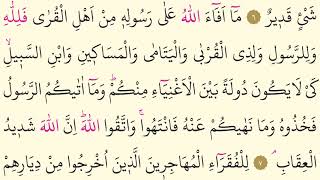 شَيْءٍ قَدِيرٌ ﴿٦﴾ مَٓا اَفَٓاءَ اللّٰهُ عَلٰى رَسُولِه۪ مِنْ اَهْلِ الْقُرٰى فَلِلّٰهِ
وَلِلرَّسُولِ وَلِذِي الْقُرْبٰى وَالْيَتَامٰى وَالْمَسَاك۪ينِ وَابْنِ السَّب۪يلِۙ
كَيْ لَا يَكُونَ دُولَةً بَيْنَ الْاَغْنِيَٓاءِ مِنْكُمْۜ وَمَٓا اٰتٰيكُمُ الرَّسُولُ
فَخُذُوهُ وَمَا نَهٰيكُمْ عَنْهُ فَانْتَهُواۚ وَاتَّقُوا اللّٰهَۜ اِنَّ اللّٰهَ شَد۪يدُ
الْعِقَابِۢ ﴿٧﴾ لِلْفُقَرَٓاءِ الْمُهَاجِر۪ينَ الَّذ۪ينَ اُخْرِجُوا مِنْ دِيَارِهِمْ